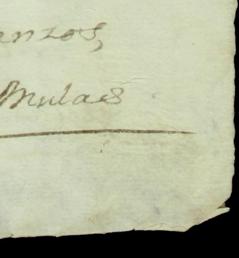 anzos,
Mulas